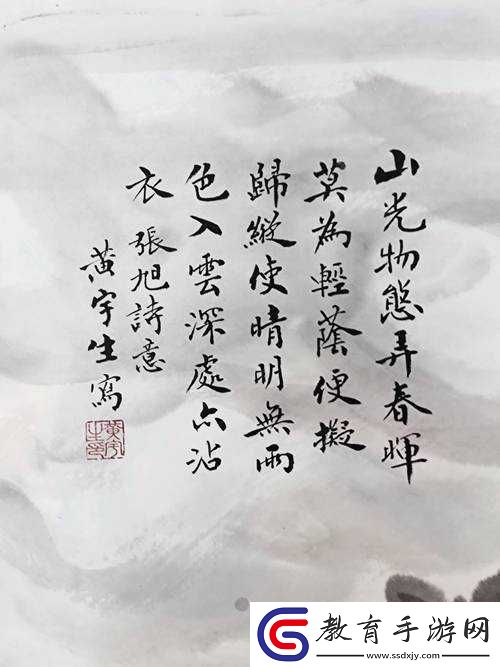 山光物態弄春暉
莫為輕蔭便擬
歸縱使晴明無雨
色入雲深處亦沾
衣 張旭詩意
黃宇生寫
教育手游网
www.ssdxjy.com